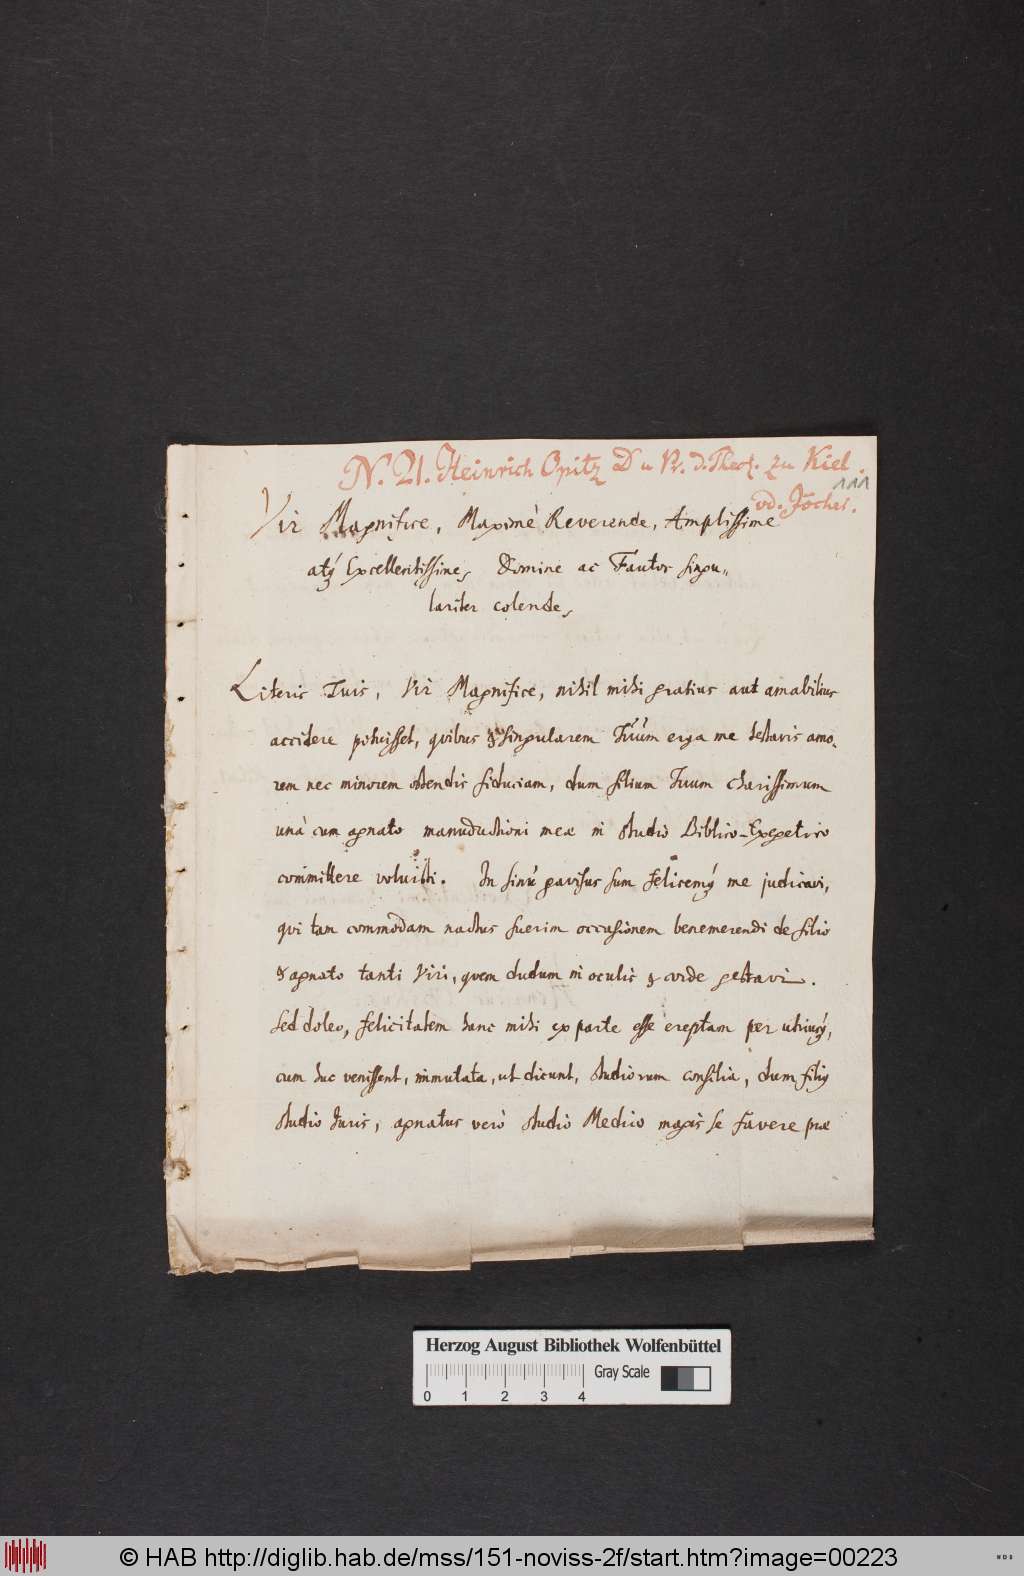 N. 21. Heinrich Opitz D u Pr. d. Theol. zu Kiel.
111
vd. Jöcher.
Vir Magnifice, Maximè Reverende, Amplissime
atq́ Excellentissime, Domine ac Fautor singu„
lariter colende,
Literis Tuis, Vir Magnifice, nihil mihi gratius aut amabilius
accidere potuisset, qvibus & singularem Tuum erga me testaris amo„
rem nec minorem ostendis fiduciam, dum filium Tuum charissimum
unà cum agnato manuductioni meæ in studio Biblico-Exegetico
committere voluisti. In sinu gavisus sum felicemq́ me judicavi,
qvi tam commodam nactus fuerim occasionem benemerendi de filio
& agnato tanti Viri, qvem dudum in oculis & corde gestavi.
Sed doleo, felicitatem hanc mihi ex parte esse ereptam per utrumq́,
cum huc venissent, immutata, ut dicunt, studiorum consilia, dum filius
studio Juris, agnatus verò studio Medico magis se favere præ
Herzog August Bibliothek Wolfenbüttel
Gray Scale
0 1 2 3 4
© HAB http://diglib.hab.de/mss/151-noviss-2f/start.htm?image=00223